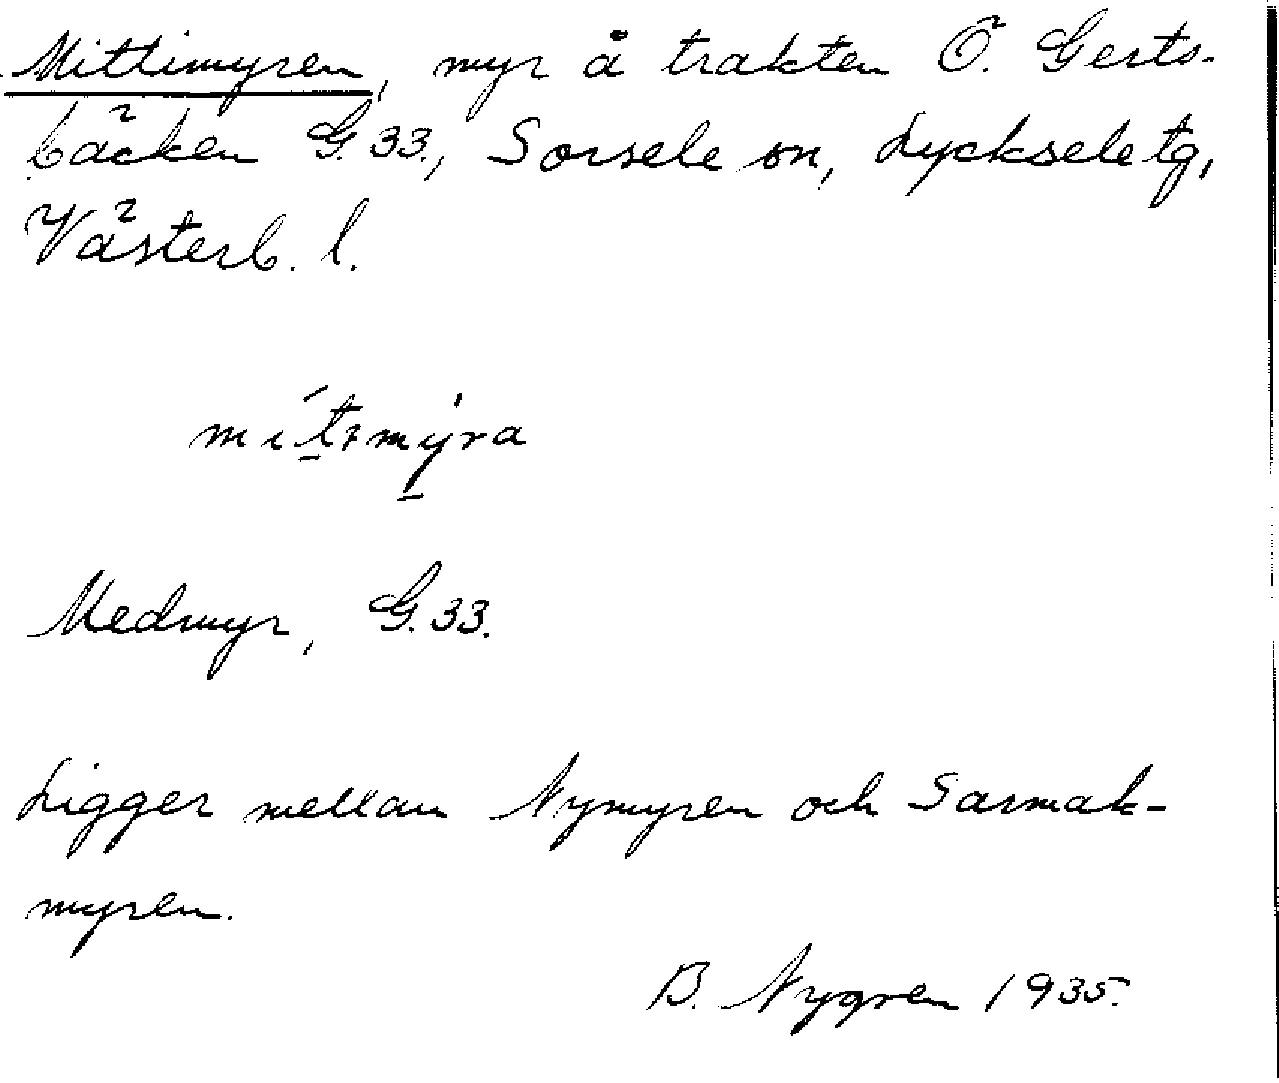 Mittimyren, myr å trakten Ö. Gerts-
bäcken G.33., Sorsele sn, Lycksele tg,
Västerb. l.
Medmyr, G.33.
Ligger mellan Nymyren och Sarmak-
myren.
B. Nygren 1935.